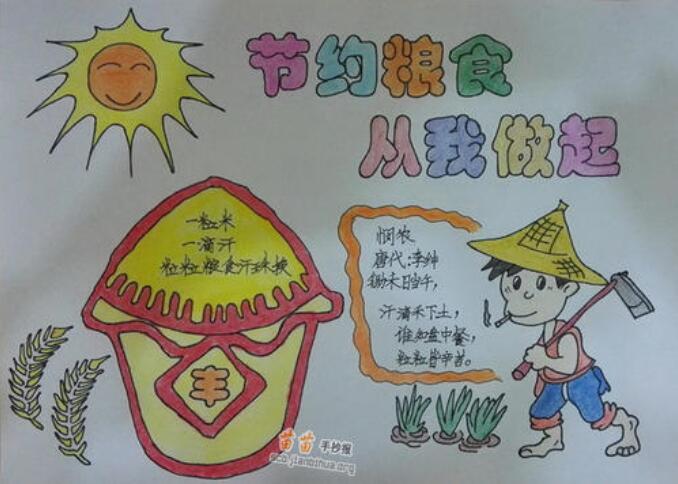 节约粮食
从我做起
一粒米
一滴汗
粒粒粮食汗珠换
丰
悯农
唐代:李绅
锄禾日当午,
汗滴禾下土,
谁知盘中餐,
粒粒皆辛苦。
苗苗手抄报
jianbihua.org